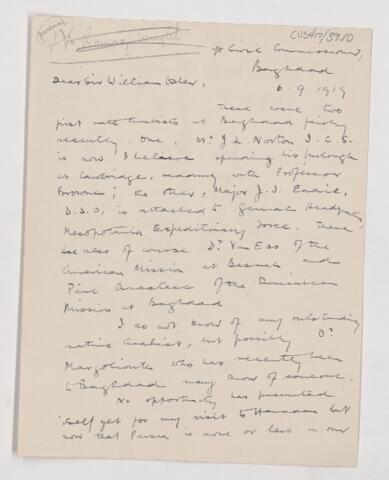 personal
CUS417/89.10
c/o Civil Commissioner,
Baghdad
6.9.1919
Dear Sir William Osler,
There were two
first rate Arabists at Baghdad fairly
recently. One, Mr J L Norton I.C.S.
is now I believe spending his furlough
at Cambridge, reading with Professor
Browne; the other, Major J. I. Eadie,
D.S.O; is attached to General Headquarters,
Mesopotamia Expeditionary Force. There
is also of course Dr Van Ess of the
American Mission at Basrah, and
Père Anastase of the Dominican
Mission at Baghdad.
I do not know of any outstanding
native Arabist, but possibly Dr
Margoliouth who has recently been
to Baghdad may know of someone.
No opportunity has presented
itself yet for my visit to Hamadan but
now that Persia is more or less in our